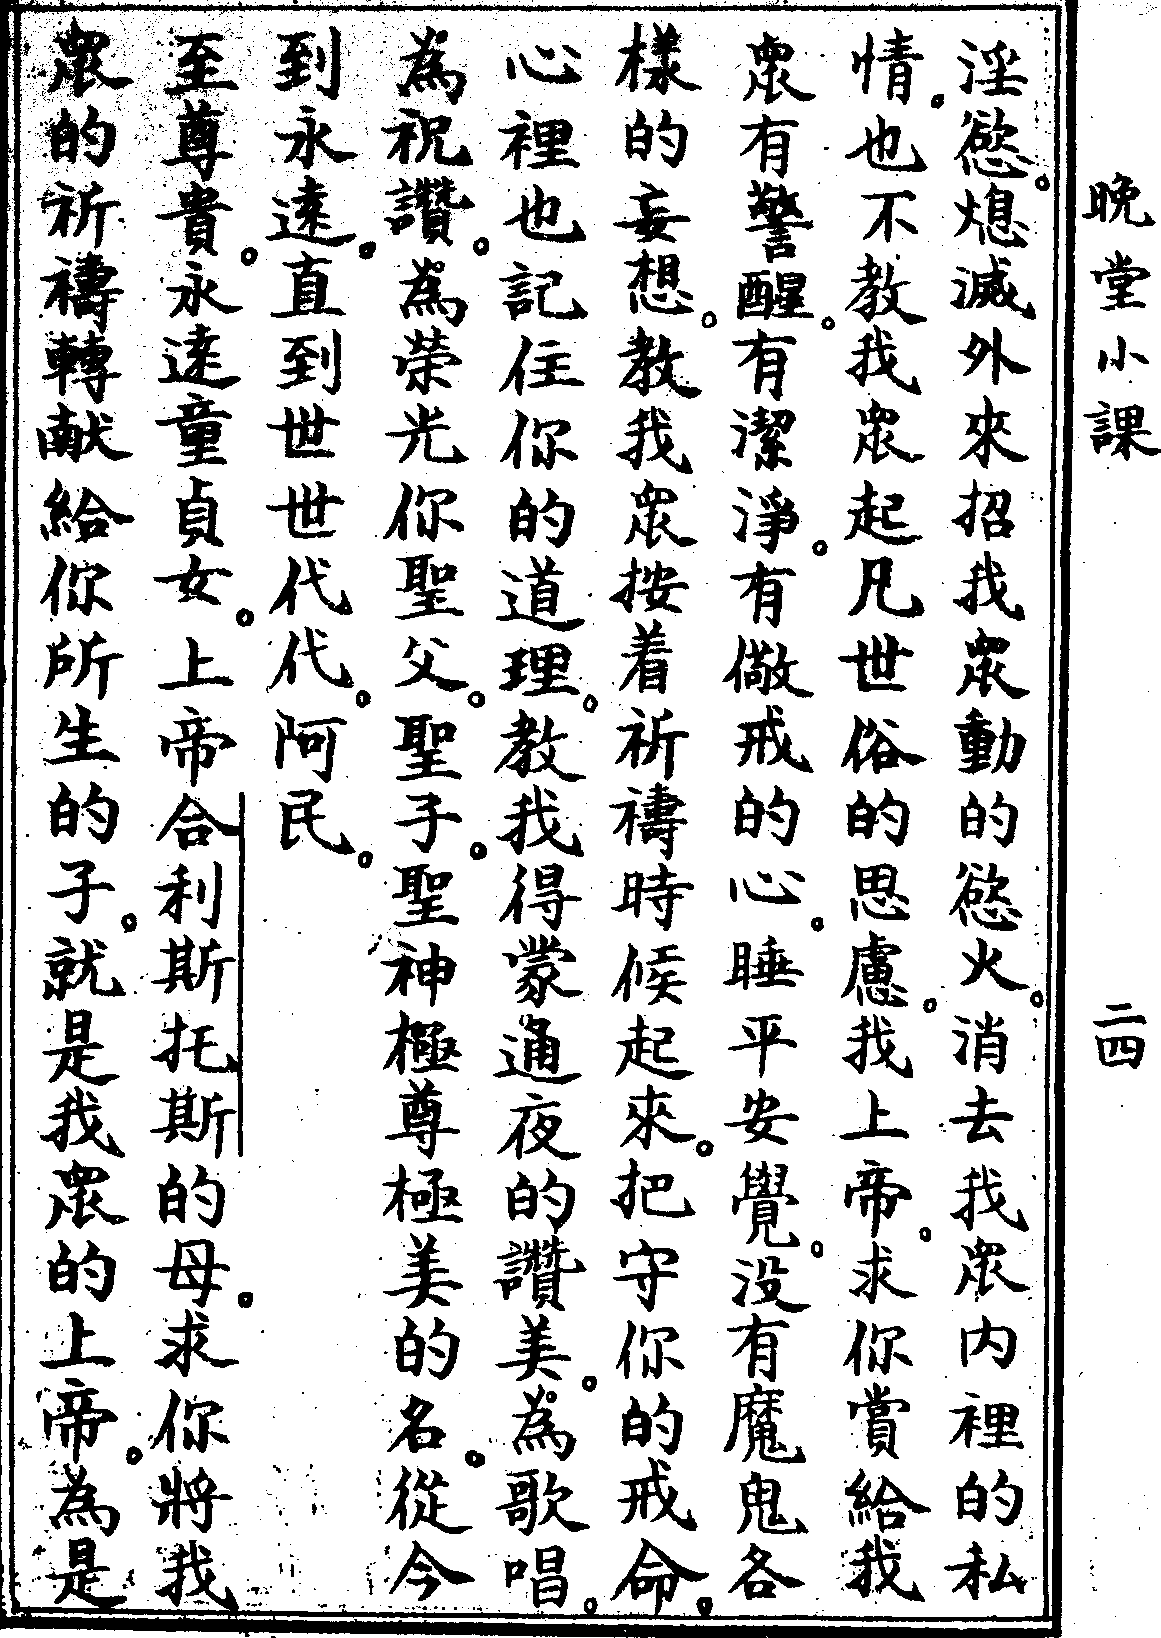 晚堂小課 二四
淫慾。熄滅外來招我眾動的慾火。消去我眾內裡的私
情。也不教我眾起凡世俗的思慮。我上帝。求你賞給我
眾有警醒。有潔淨。有儆戒的心。睡平安覺。没有魔鬼各
樣的妄想。教我眾按着祈禱時候起來。把守你的戒命。
心裡也記住你的道理。教我得蒙通夜的讚美。為歌唱。
為祝讚。為榮光你聖父。聖子。聖神極尊極美的名。從今
到永遠。直到世世代代。阿民。
至尊貴。永遠童貞女。上帝合利斯托斯的母。求你將我
眾的祈禱轉献給你所生的子。就是我眾的上帝。為是